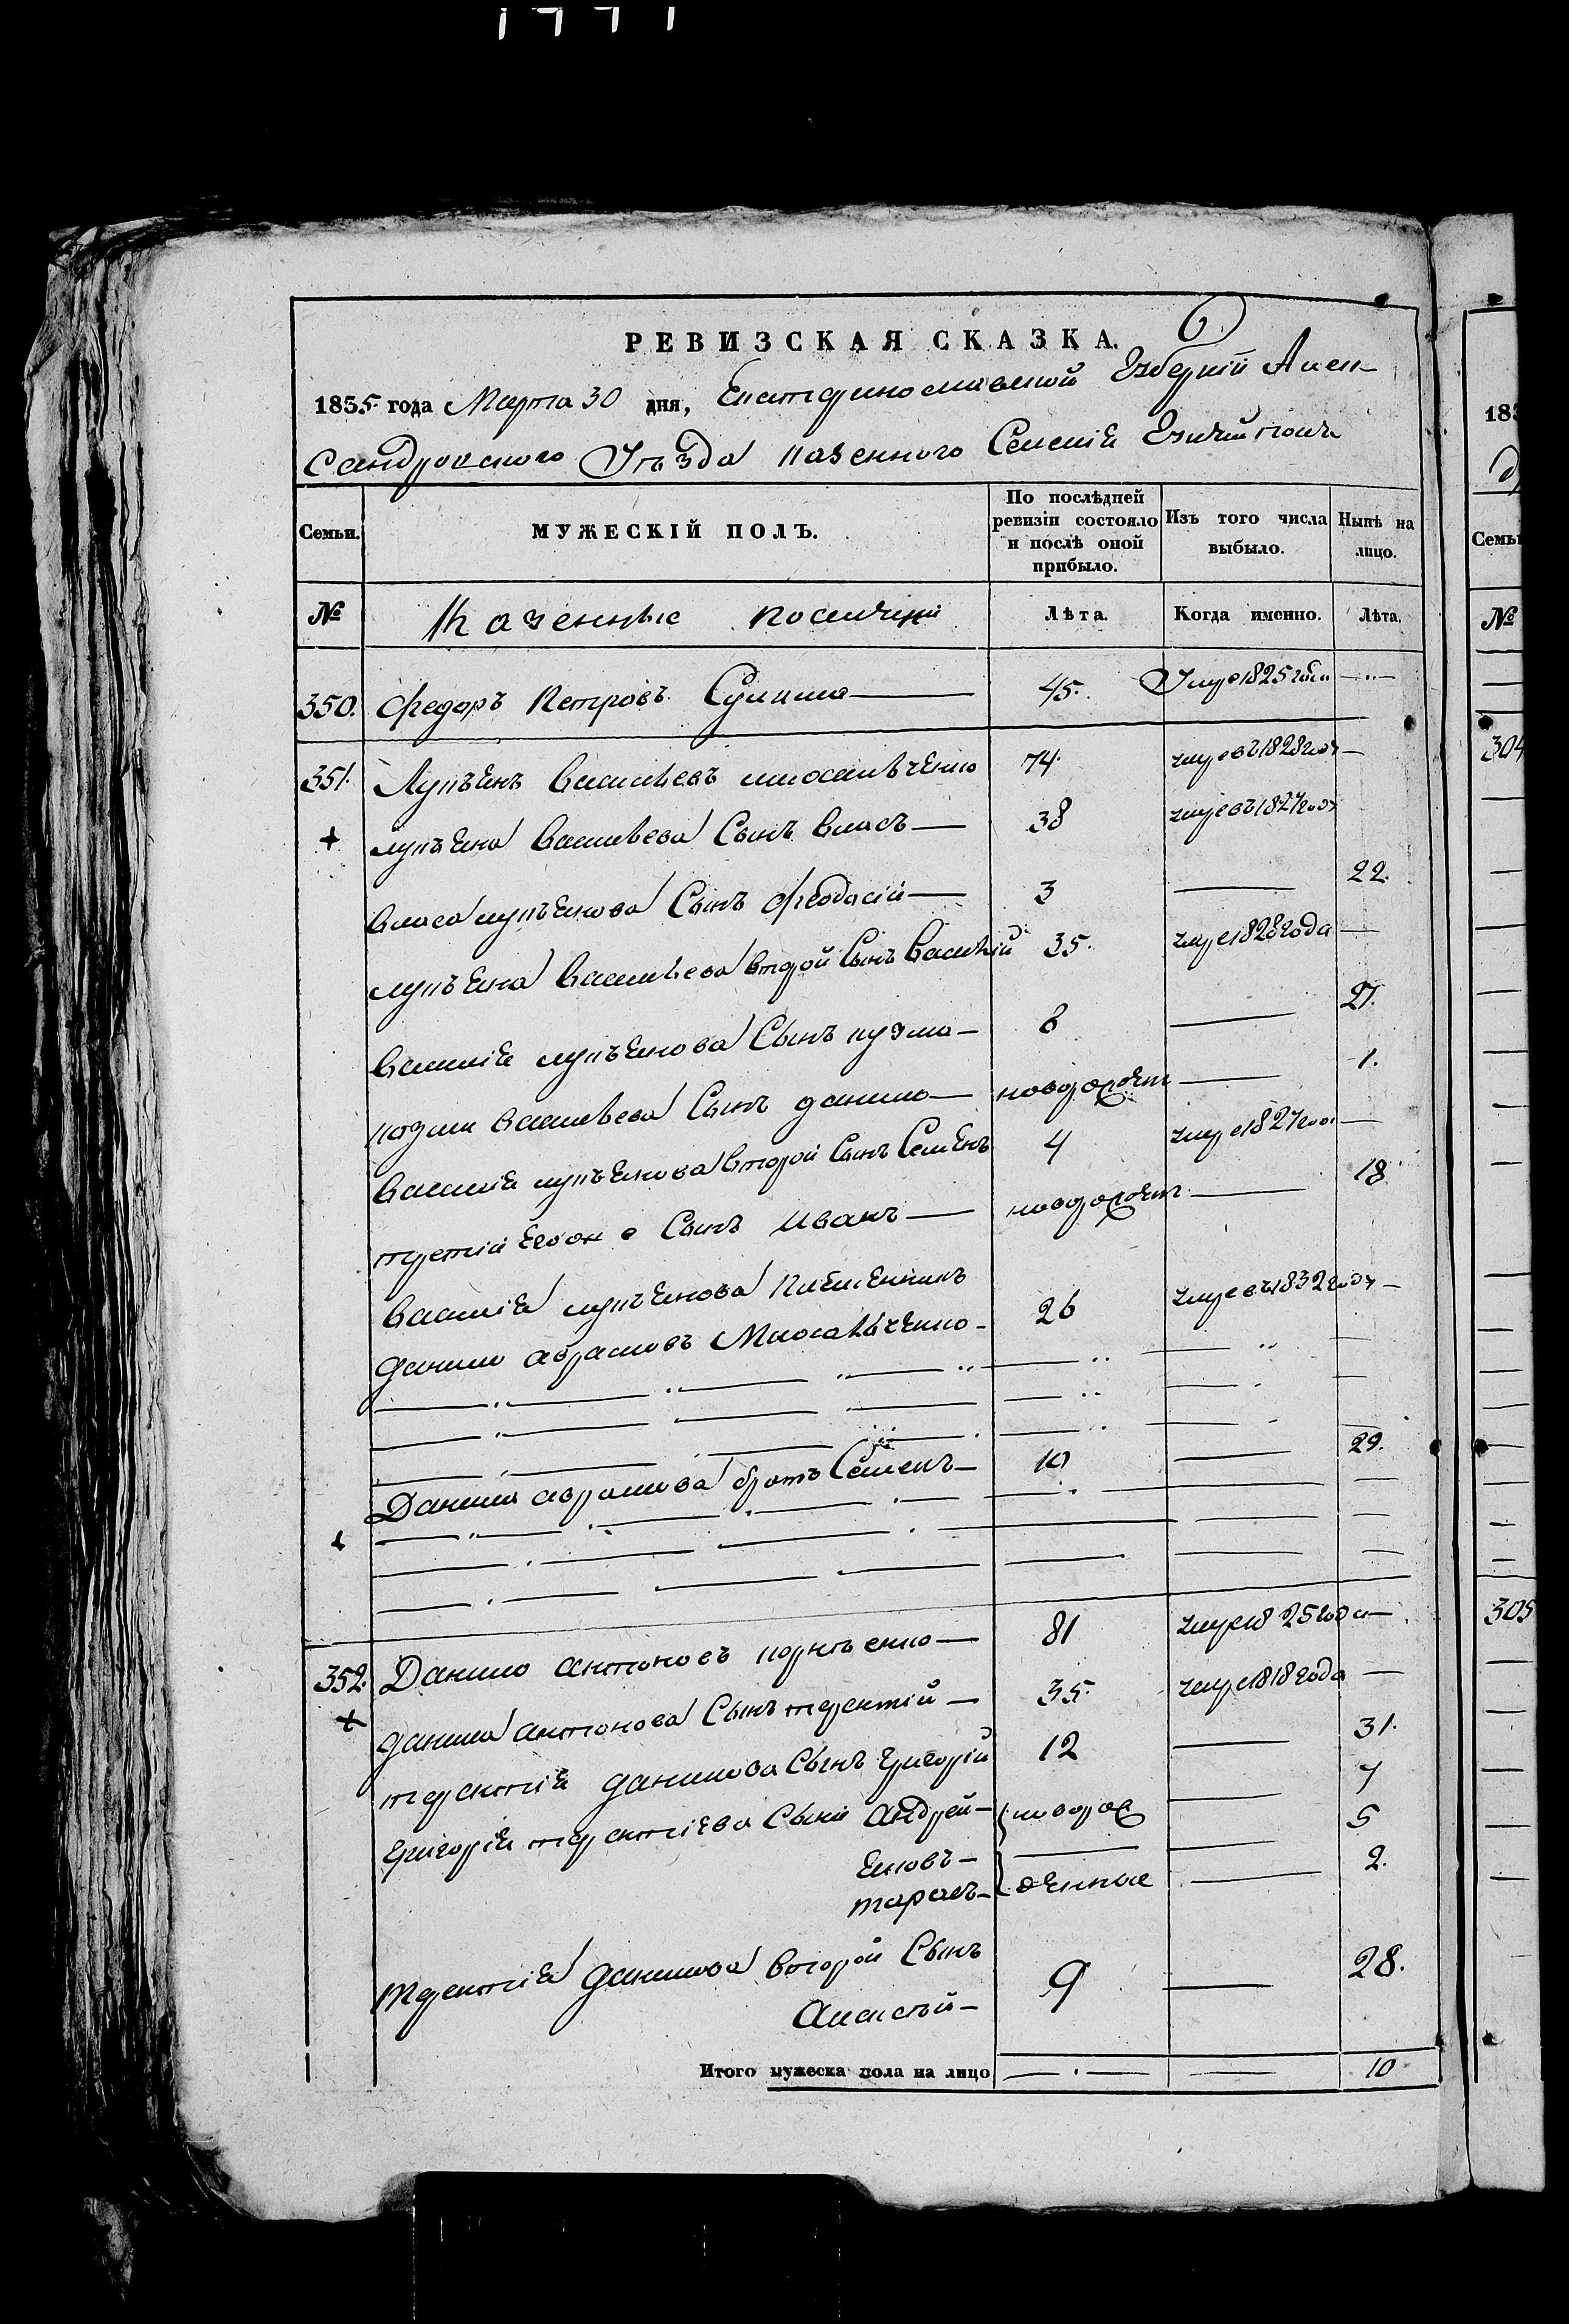 РЕВИЗСКАЯ СКАЗКА.
1835 года Марта 30 дня, Екатеринославской Губерніи Алек-
сандровского Уѣзда казенного Селенія
Семьи. МУЖЕСКІЙ ПОЛЪ. По послѣдней ревизіи состояло и послѣ оной прибыло. Изъ того числа выбыло. Нынѣ на лицо.
№ Казенные поселяни Лѣта. Когда именно. Лѣта.
350. Федоръ Петровъ Сулима 45. Умре 1825 года
351. Лукъянъ Васильевъ 74. умре въ 1828 году
лукъяна Васильева Сынъ Власъ 38 умре въ 1827 году
Власа лукъянова Сынъ Феодосій 3 22.
лукъяна Васильева второй Сынъ Василій 35. умре 1828 года
Василія лукъянова Сынъ кузма 8 27.
козми Васильева Сынъ данило новорожден 1.
Василія лукъянова второй Сынъ Семенъ 4 умре 1827 года
третій Сынъ Иванъ новорожден 18
Василія лукъянова племенникъ
данило абрамовъ 26 умре въ 1832 году
Данила аврамова братъ Семенъ 10 29.
352. Данило антоновъ корнѣенко 81 умре 1825 года
данила антонова Сынъ терентій 35. умре 1818 года
терентія данилова Сынъ Григорій 12 31.
Григорія терентіева Сыни андрей новорож 7
5
тарасъ денные 2.
терентія данилова второй Сынъ 9 28.
алексѣй
Итого мужеска пола на лицо 10
183
Семьи
№
304
305